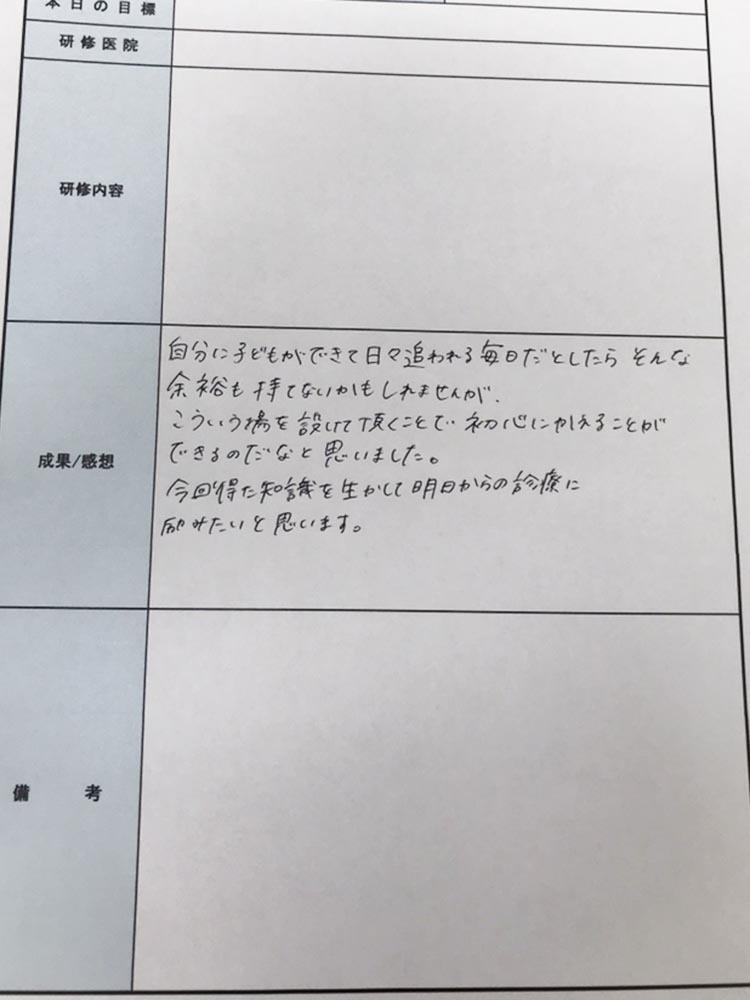 本日の目標
研修医院
研修内容
自分に子どもができて日々追われる毎日だとしたら そんな
余裕も持てないかもしれませんが、
こういう場を設けて頂くことで初心にかえることが
できるのだなと思いました。
成果/感想
今回得た知識を生かして明日からの診療に
励みたいと思います。
備考